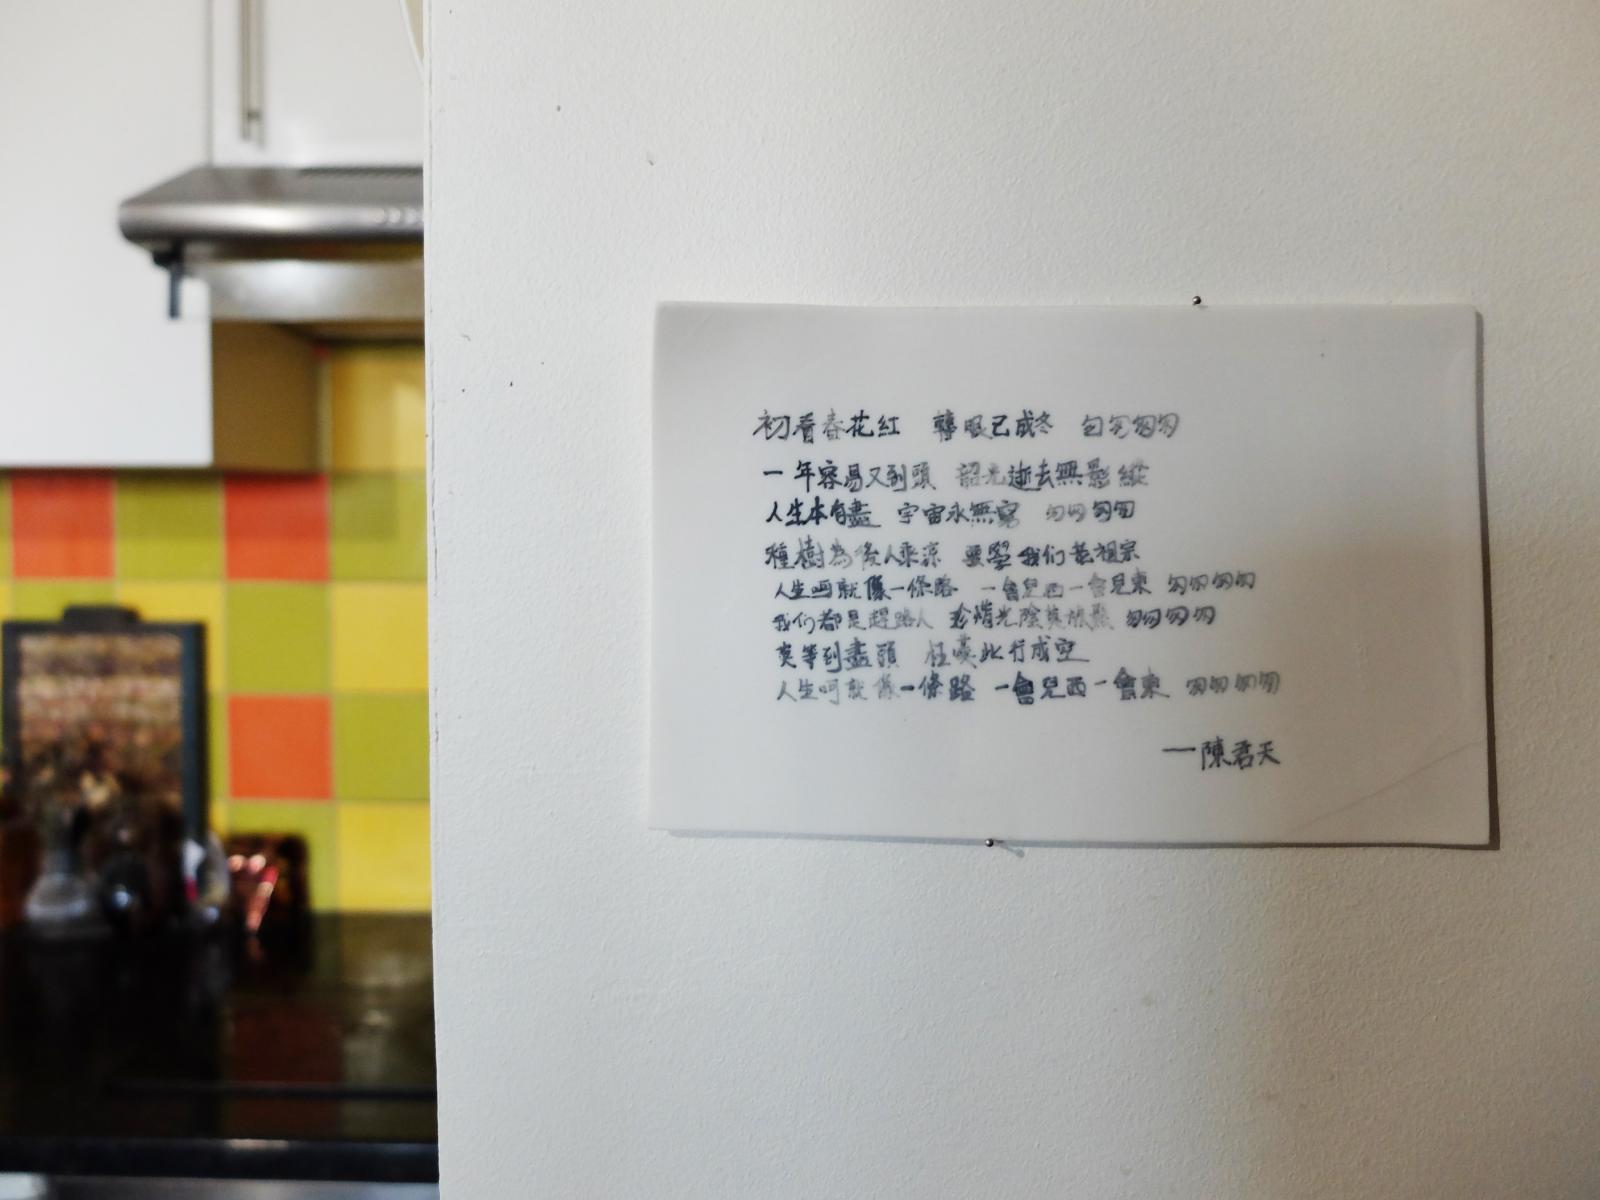 初看春花紅 轉眼已成冬 匆匆匆匆
一年容易又到頭 韶光逝去無影縱
人生本有盡 宇宙永無窮 匆匆匆匆
種樹為後人乘涼 要學我们老祖宗
人生呵就像一條路 一會兒西一會兒東 匆匆匆匆
我们都是趕路人 珍惜光陰莫放鬆 匆匆匆匆
莫等到盡頭 枉嘆此行成空
人生呵就像一條路 一會兒西一會東 匆匆匆匆
—陳君天